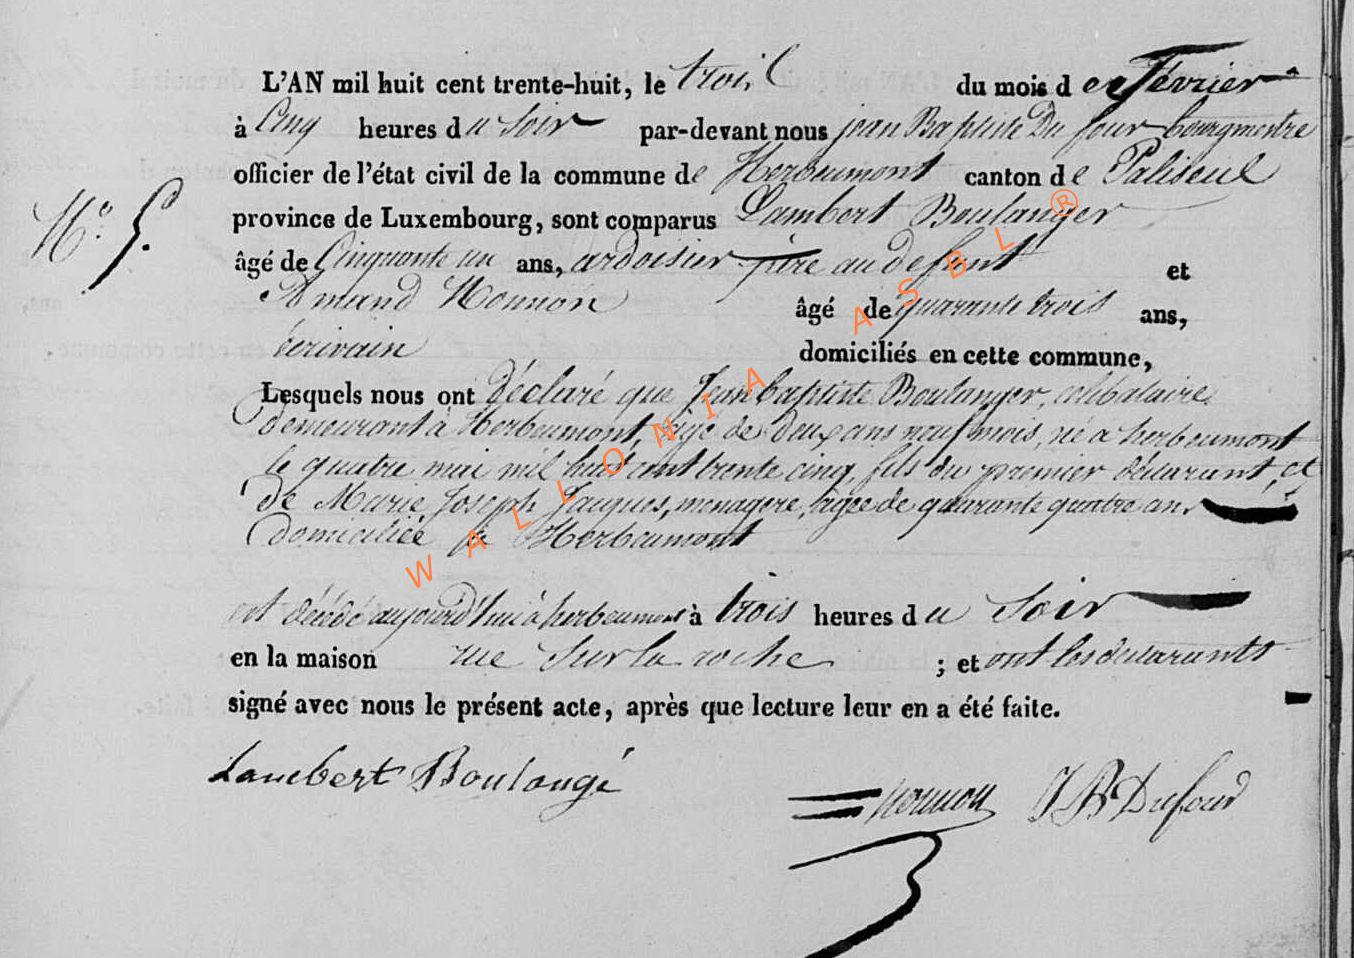 L'AN mil huit cent trente-huit, le trois du mois de Février
à Cinq heures du Soir par-devant nous jean Baptiste Dufour bourgmestre
officier de l'état civil de la commune de Herbeumont canton de Paliseul
N.° 5.
province de Luxembourg, sont comparus Lambert Boulanger
âgé de Cinquante un ans, ardoisier père au defunt et
Amand Monnon âgé de quarante trois ans,
écrivain domiciliés en cette commune,
Lesquels nous ont déclaré que Jean baptiste Boulanger, célibataire,
demeurant à Herbeumont, âgé de deux ans neuf mois, né a herbeumont
le quatre mai mil huit cent trente cinq, fils du premier déclarant, et
de Marie Joseph Jacques, menagere, agée de quarante quatre ans
domiciliée à Herbeumont
est décédé aujourd'hui à herbeumont à trois heures du Soir
en la maison rue Sur la roche ; et ont les déclarants
signé avec nous le présent acte, après que lecture leur en a été faite.
Lambert Boulangé
Monnon JB Dufour
WALLONIA ASBL ®